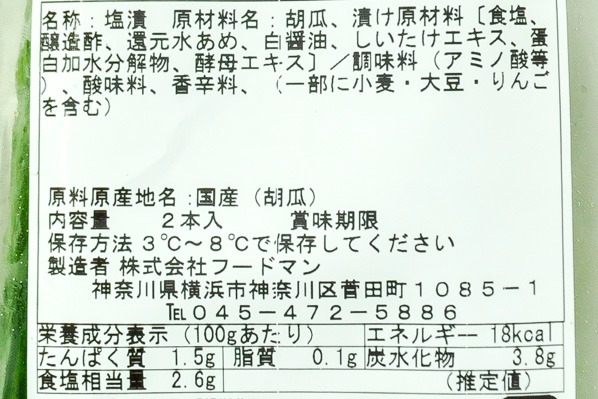 名称：塩漬　原材料名：胡瓜、漬け原材料〔食塩、
醸造酢、還元水あめ、白醤油、しいたけエキス、蛋
白加水分解物、酵母エキス〕／調味料（アミノ酸等
）、酸味料、香辛料、（一部に小麦・大豆・りんご
を含む）
原料原産地名：国産（胡瓜）
内容量　２本入　賞味期限
保存方法 3℃～8℃で保存してください
製造者 株式会社フードマン
神奈川県横浜市神奈川区菅田町１０８５－１
℡０４５－４７２－５８８６
栄養成分表示（100gあたり） エネルギー 18kcal
たんぱく質 1.5g 脂質 0.1g 炭水化物 3.8g
食塩相当量 2.6g （推定値）